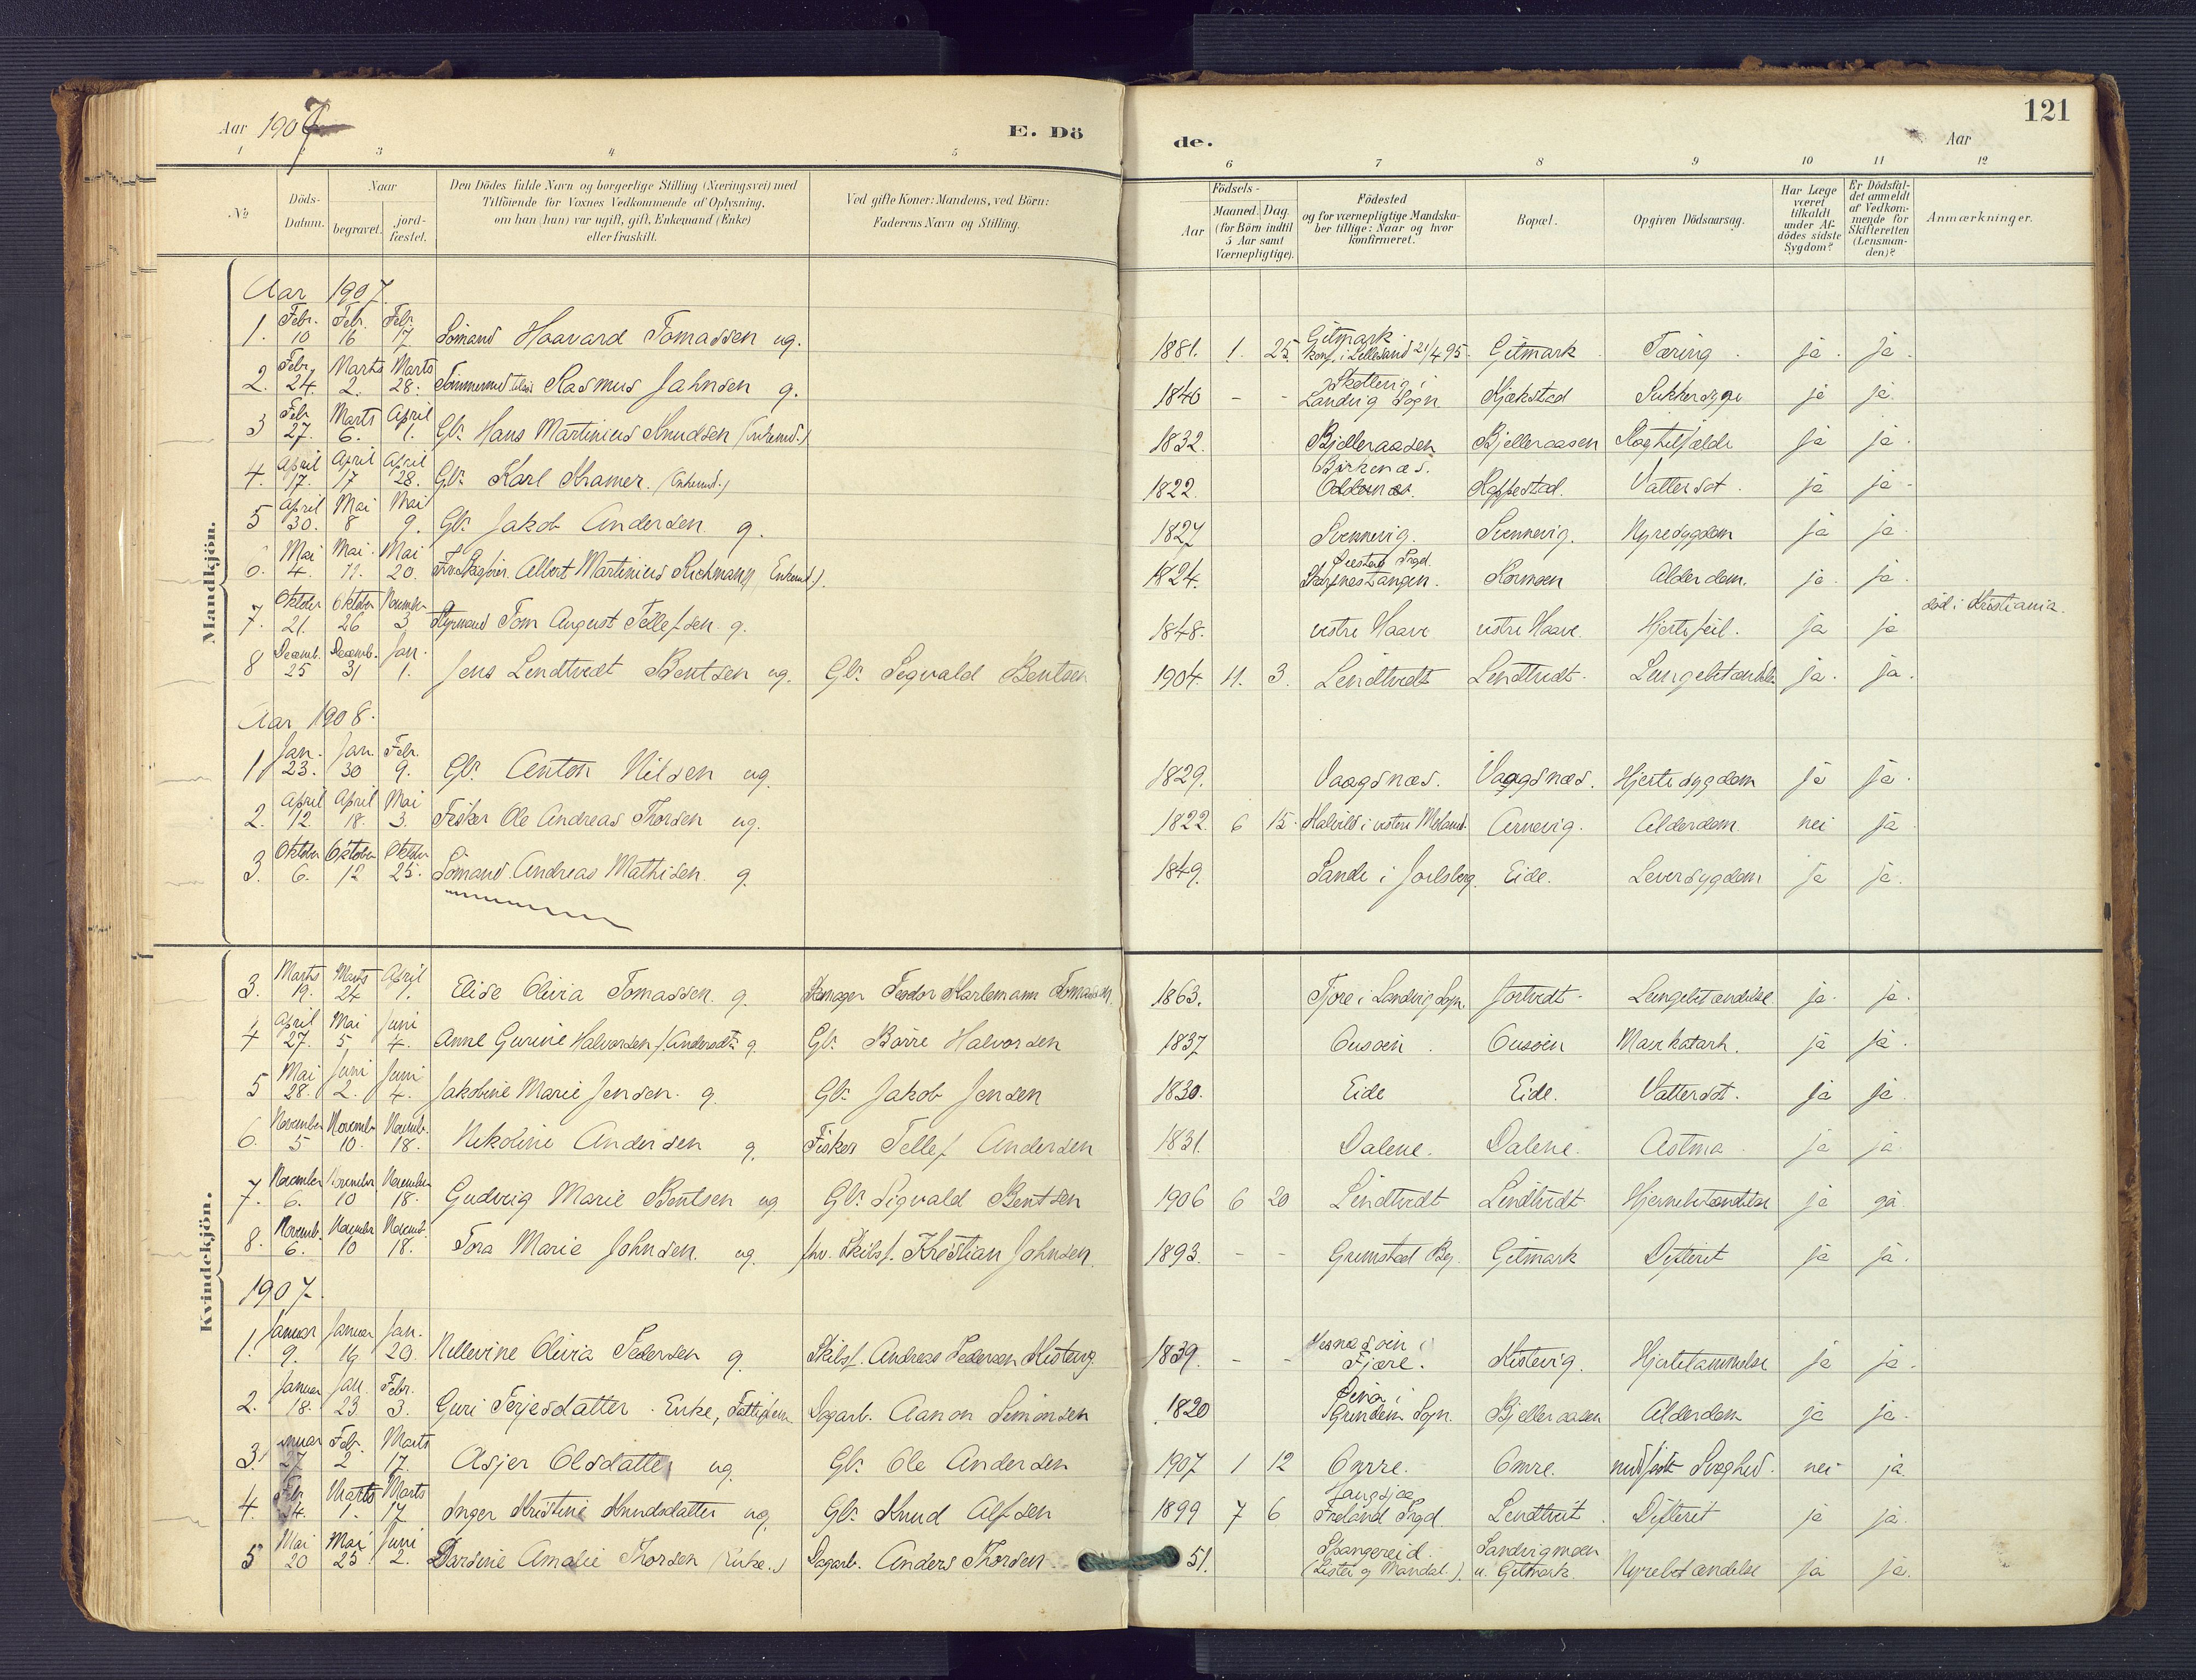 121
Aar 1907
E. Dö
de.
Aar
1 2 3 4 5 6 7 8 9 10 11 12
No
Döds-Datum.
Naar
begravet.
jord-fæstet.
Den Dödes fulde Navn og borgerlige Stilling (Næringsvei) med
Tilföiende for Voxnes Vedkommende af Oplysning,
om han (hun) var ugift, gift, Enkemand (Enke)
eller fraskilt.
Ved gifte Koner: Mandens, ved Börn:
Faderens Navn og Stilling.
Födsels-
Aar
Maaned. Dag.
(for Börn indtil
5 Aar samt
Værnepligtige).
Födested
og for værnepligtige Mandska-
ber tillige: Naar og hvor
konfirmeret.
Bopæl.
Opgiven Dödsaarsag.
Har Læge
været
tilkaldt
under Af-
dödes sidste
Sygdom?
Er Dödsfal-
det anmeldt
af Vedkom-
mende for
Skifteretten
(Lensman-
den)?
Anmærkninger.
Mandkjön.
Aar 1907.
1. Febr. 10 Feb. 16 Feb. 17. Sömand Haavard Tomassen ug. 1881. 1. 25 Gitmark. konf. i Lillesand 21/4 95. Gitmark Tæring. ja. ja.
2. Febr. 24. Marts 2. Marts 28. Rasmus Jahnsen g. 1840 - - i Landvig Sogn Kjækstad Sukkersyge ja ja.
3 Feb. 27. Marts 6. April 1. Gbr. Hans Martinius Knudsen (Enkemd.) 1832. Bjelleraasen Bjelleraasen Slagtilfælde ja ja.
4. April 17. April 17 April 28. Gbr. Karl Kramer. (Enkemd.) 1822. Birkenæs. Vattersot. ja ja.
5 April 30. Mai 8 Mai 9. Gbr. Jakob Andersen. g. 1827 Svennevig. Svennevig. Nyresygdom ja ja.
6. Mai 4. Mai. 11. Mai 20. Albert Martinius Richmann (Enkemd.). 1824. Øiestad Prgd. Alderdom. ja. ja.
7. Oktober 21. Oktober 26 November 3 Styrmand Tom August Tellefsen g. 1848. vestre Haave vestre Haave. Hjertefeil. ja ja död i Kristiania.
8 Decemb. 25 Decemb. 31 Jan. 1. Jens Lendtvedt Bentsen ug. Gbr. Sigvald Bentsen 1904. 11. 3. Lendtvedt Lendtvedt. Lungebetændelse ja. ja.
Aar 1908.
1 Jan. 23. Jan. 30 Febr. 9. Gbr. Anton Nilsen ug. 1829. Vaagsnæs. Vaagsnæs. Hjertesygdom ja ja.
2. April 12. April 18. Mai 3. Fisker Ole Andreas Thorsen ug. 1822. 6 15. i vestre Moland. Arnevig. Alderdom nei ja
3. Oktober 6. Oktober 12 Oktober 25. Sömand Andreas Mathisen. g. 1849. Sande i Jarlsberg. Eide. Leversygdom ja ja.
Kvindekjön.
3. Marts 19. Marts 24 April 1. Elise Olivia Tomassen g. Teodor Karlemann Tomassen. 1863. Tjore i Landvig Sogn. Jortvedt. Lungebetændelse ja. ja.
4 April 27. Mai 5 Juni 4. Anne Gurine Halvorsen f. Andersdtr. g. Gbr. Börre Halvorsen 1837 Ousöen. Ousöen Mavekatarh. ja ja.
5 Mai 28. Juni 2. Juni 4. Jakobine Marie Jensen. g. Gbr. Jakob Jensen 1830. Eide Eide. Vattersot. ja ja.
6. November 5 Novemb. 10. Novemb. 18. Nikoline Andersen g. Fisker Tellef Andersen 1831. Dalene. Dalene. Astma ja ja.
7. November 6. November 10 November 18. Gudvig Marie Bentsen ug Gbr. Sigvald Bentsen 1906 6 20 Lindtvedt Lindtvedt Hjernebetændelse ja ja.
8. Novemb. 6. November 10 Novemb. 18. Tora Marie Johnsen. ug fhv. Skibsf. Khristian Johnsen. 1893. - - Grimstad By. Gitmark Difterit ja ja.
1907.
1. Januar 9. Januar 19 Jan. 20. Nillevine Olivia Pedersen g. Skibsf. Andreas Pedersen Kistevig. 1839. - - i Fjære. Kistevig. Hjertelammelse ja ja.
2. Januar 18. Jan. 23 Febr. 3. Guri Terjesdatter. Enke, Fattiglem Dagarb. Aanon Simonsen 1820 i Sogn. Bjelleraasen Alderdom ja ja.
3. Januar 27 Feb. 2 Marts 17. Asjer Olsdatter ug. Gbr. Ole Andersen 1907 1 12 Omre. Omre. medfödt Svaghed. nei ja.
4. Feb. 24. Marts 1. Marts 17. Inger Kristine Knudsdatter ug. Gbr. Knud Alfsen 1899 7 6 Prgd. Lendtveit. Difterit ja ja
5 Mai 20 Mai 25 Juni 2. Amalie Thorsen (Enke.) Dagarb. Anders Thorsen 51. Spangereid (Lister og Mandal.). Sandvigmoen u. Gitmark. Nyrebetændelse ja ja.